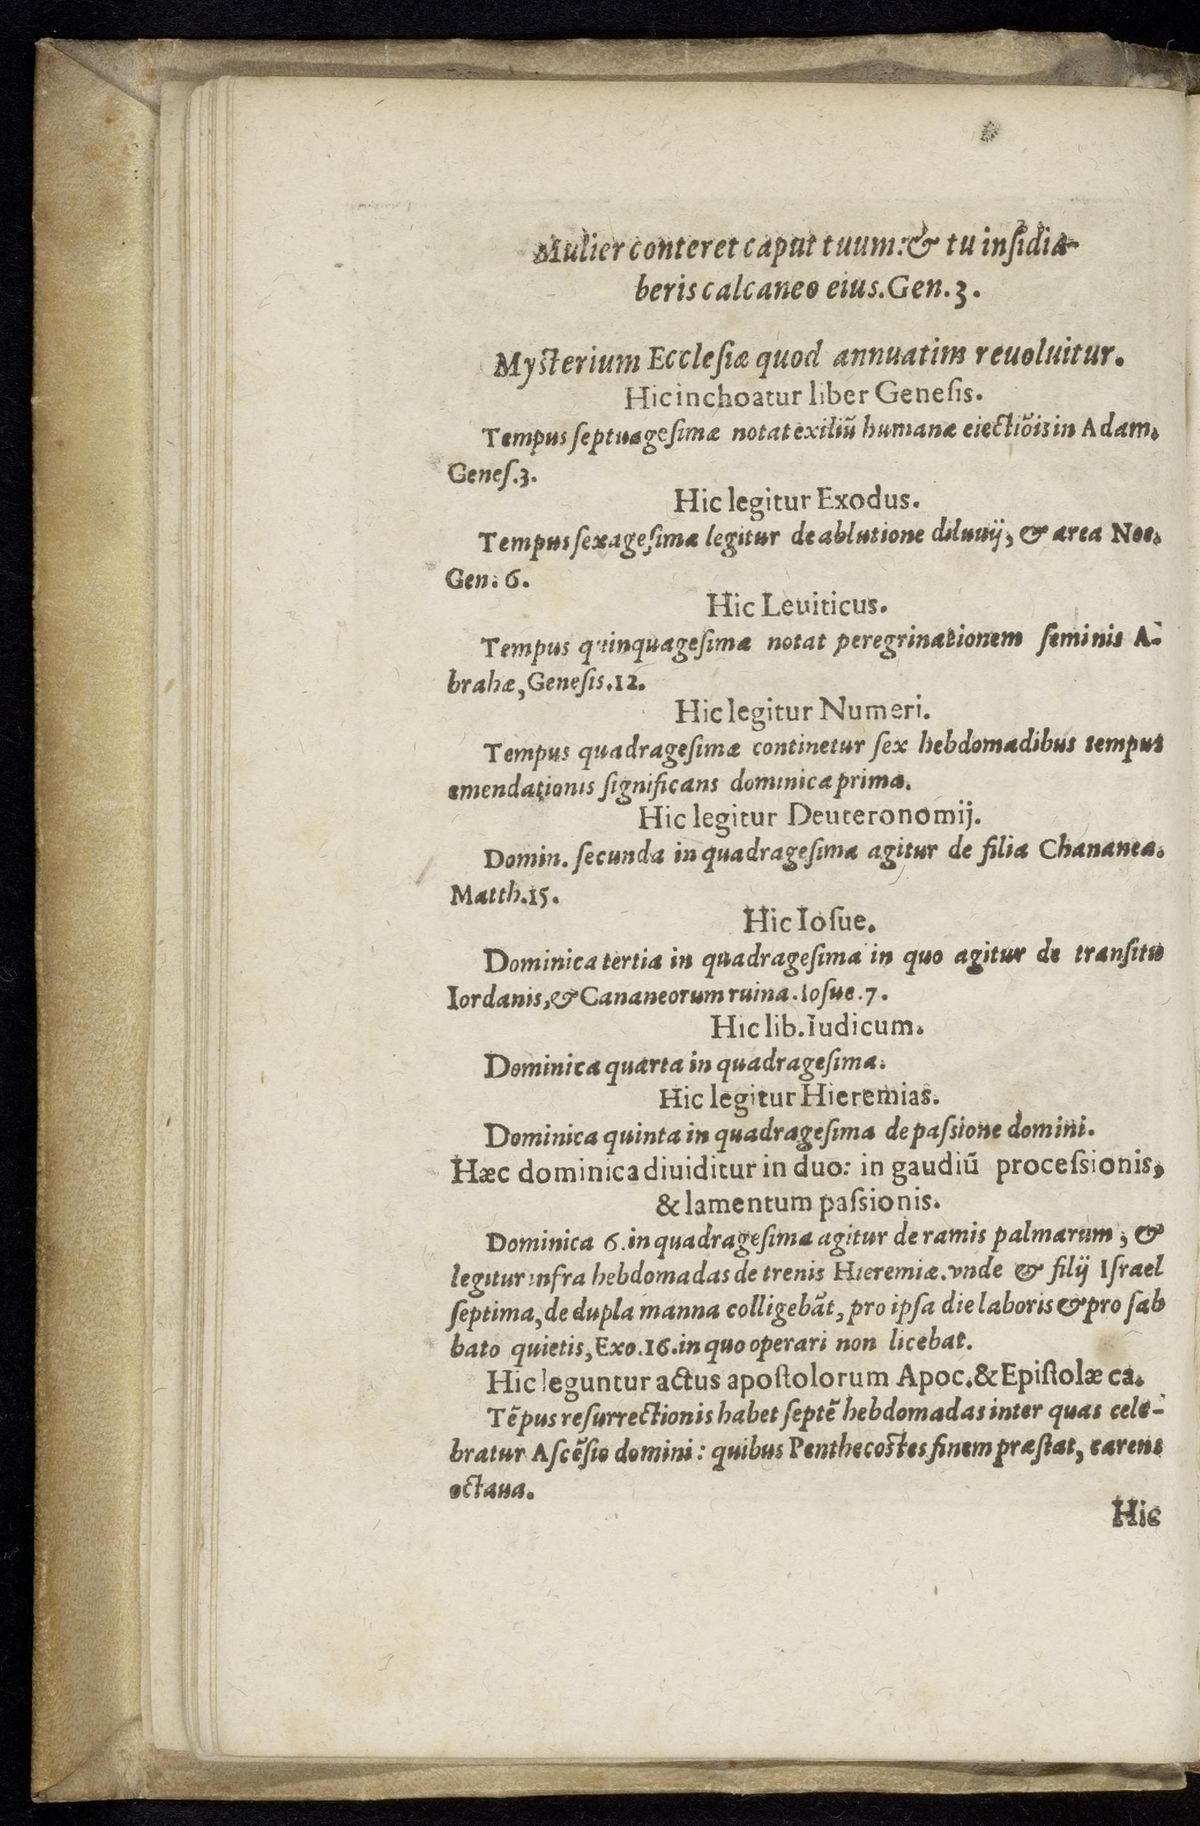 Mulier conteret caput tuum: & tu inſidia-
beris calcaneo eius. Gen. 3.
Myſterium Eccleſiæ quod annuatim reuoluitur.
Hic inchoatur liber Geneſis.
Tempus ſeptuageſimæ notat exiliũ humanæ eiectiõis in Adam.
Geneſ. 3.
Hic legitur Exodus.
Tempus ſexageſimæ legitur de ablutione diluuij, & area Noe.
Gen. 6.
Hic Leuiticus.
Tempus quinquageſimæ notat peregrinationem ſeminis A-
brahæ, Geneſis. 12.
Hic legitur Numeri.
Tempus quadrageſimæ continetur ſex hebdomadibus tempus
emendationis ſignificans dominica prima.
Hic legitur Deuteronomij.
Domin. ſecunda in quadrageſima agitur de filia Chananea.
Matth. 15.
Hic Ioſue.
Dominica tertia in quadrageſima in quo agitur de tranſitu
Iordanis, & Cananeorum ruina. Ioſue. 7.
Hic lib. Iudicum.
Dominica quarta in quadrageſima.
Hic legitur Hieremias.
Dominica quinta in quadrageſima de paſsione domini.
Hæc dominica diuiditur in duo: in gaudiũ proceſsionis,
& lamentum paſsionis.
Dominica 6. in quadrageſima agitur de ramis palmarum, &
legitur infra hebdomadas de trenis Hieremiæ. vnde & filij Iſrael
ſeptima, de dupla manna colligebãt, pro ipſa die laboris & pro ſab
bato quietis, Exo. 16. in quo operari non licebat.
Hic leguntur actus apoſtolorum Apoc. & Epiſtolæ ca.
Tẽpus reſurrectionis habet ſeptẽ hebdomadas inter quas cele-
bratur Aſcẽſio domini: quibus Penthecoſtes finem præſtat, carens
octaua.
Hic